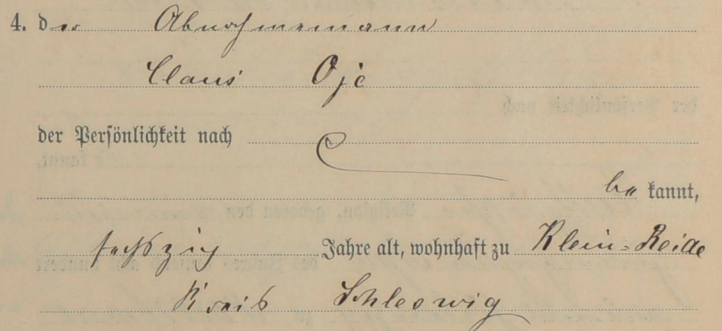 4. der Abnahmemann
Claus Oje
der Persönlichkeit nach
be kannt,
sechszig Jahre alt, wohnhaft zu Klein-Reide
Kreis Schleswig